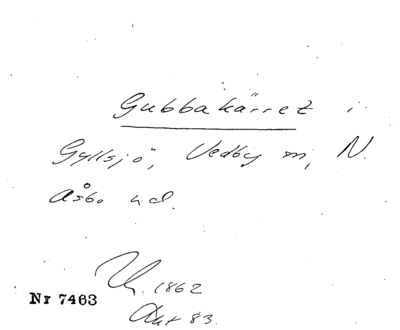 Gubbakärret i
Gyllsjö, Vedby sn, N.
Åsbo hd.
1862
Nr 7463
83.